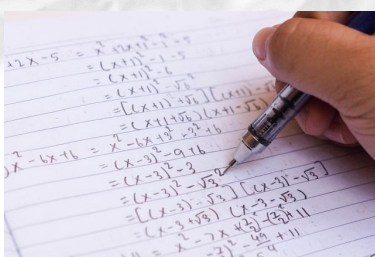 +2x - 5 = x² + 2x + 1² - 1² - 5
= (x+1)² - 1 - 5
= (x+1)² - 6
= [(x+1) + √6] [(x+1) - √
= (x+1+√6) (x+1-√6)
)x² - 6x + 6 = x² - 6x + 3² - 3² + 6
= (x-3)² - 9 + 6
= (x-3)² - 3
= (x-3)² - √3²
= [(x-3) + √3] [(x-3) - √3]
= (x-3+√3) (x-3-√3)
11 = x² - 7x + (7/2)² - (7/2)² + 11
)² - 49 + 11